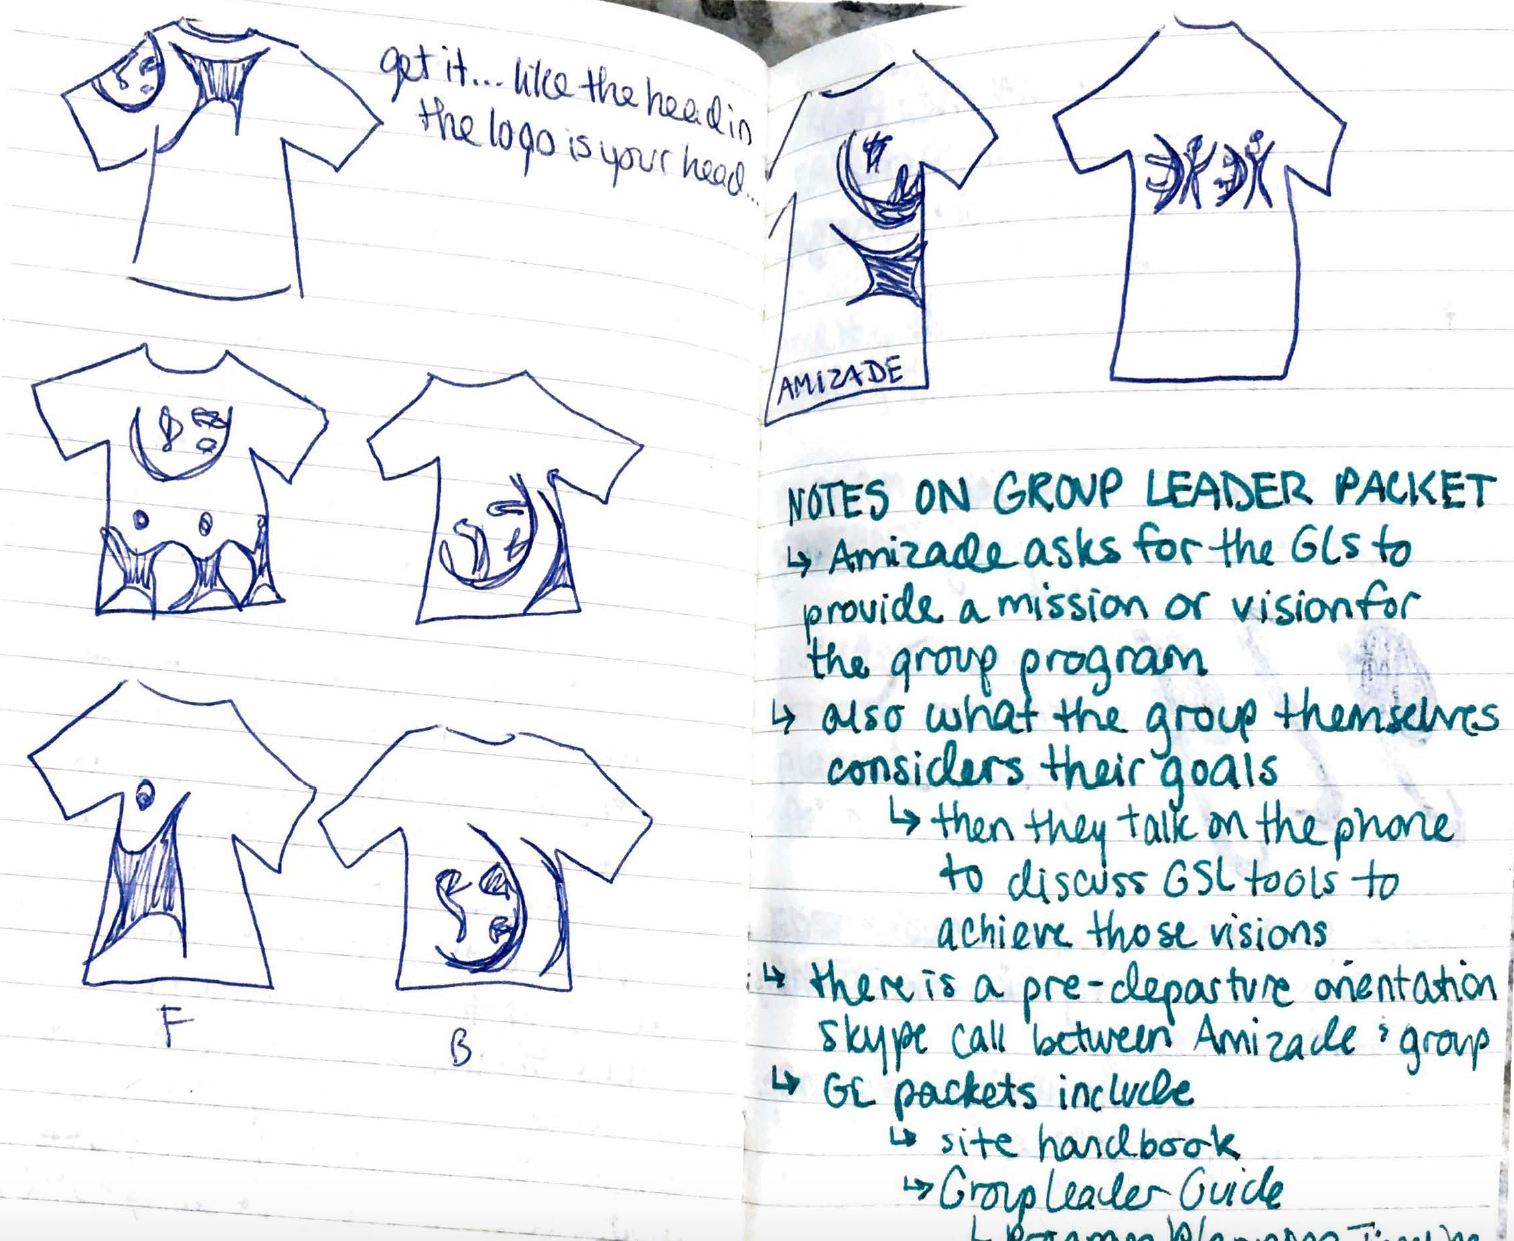 get it... like the head in
the logo is your head...
F
B
AMIZADE
NOTES ON GROUP LEADER PACKET
↳ Amizade asks for the GLs to
provide a mission or vision for
the group program
↳ also what the group themselves
considers their goals
↳ then they talk on the phone
to discuss GSL tools to
achieve those visions
↳ there is a pre-departure orientation
skype call between Amizade & group
↳ GL packets include
↳ site handbook
↳ Group Leader Guide
↳ Program Planning Timeline